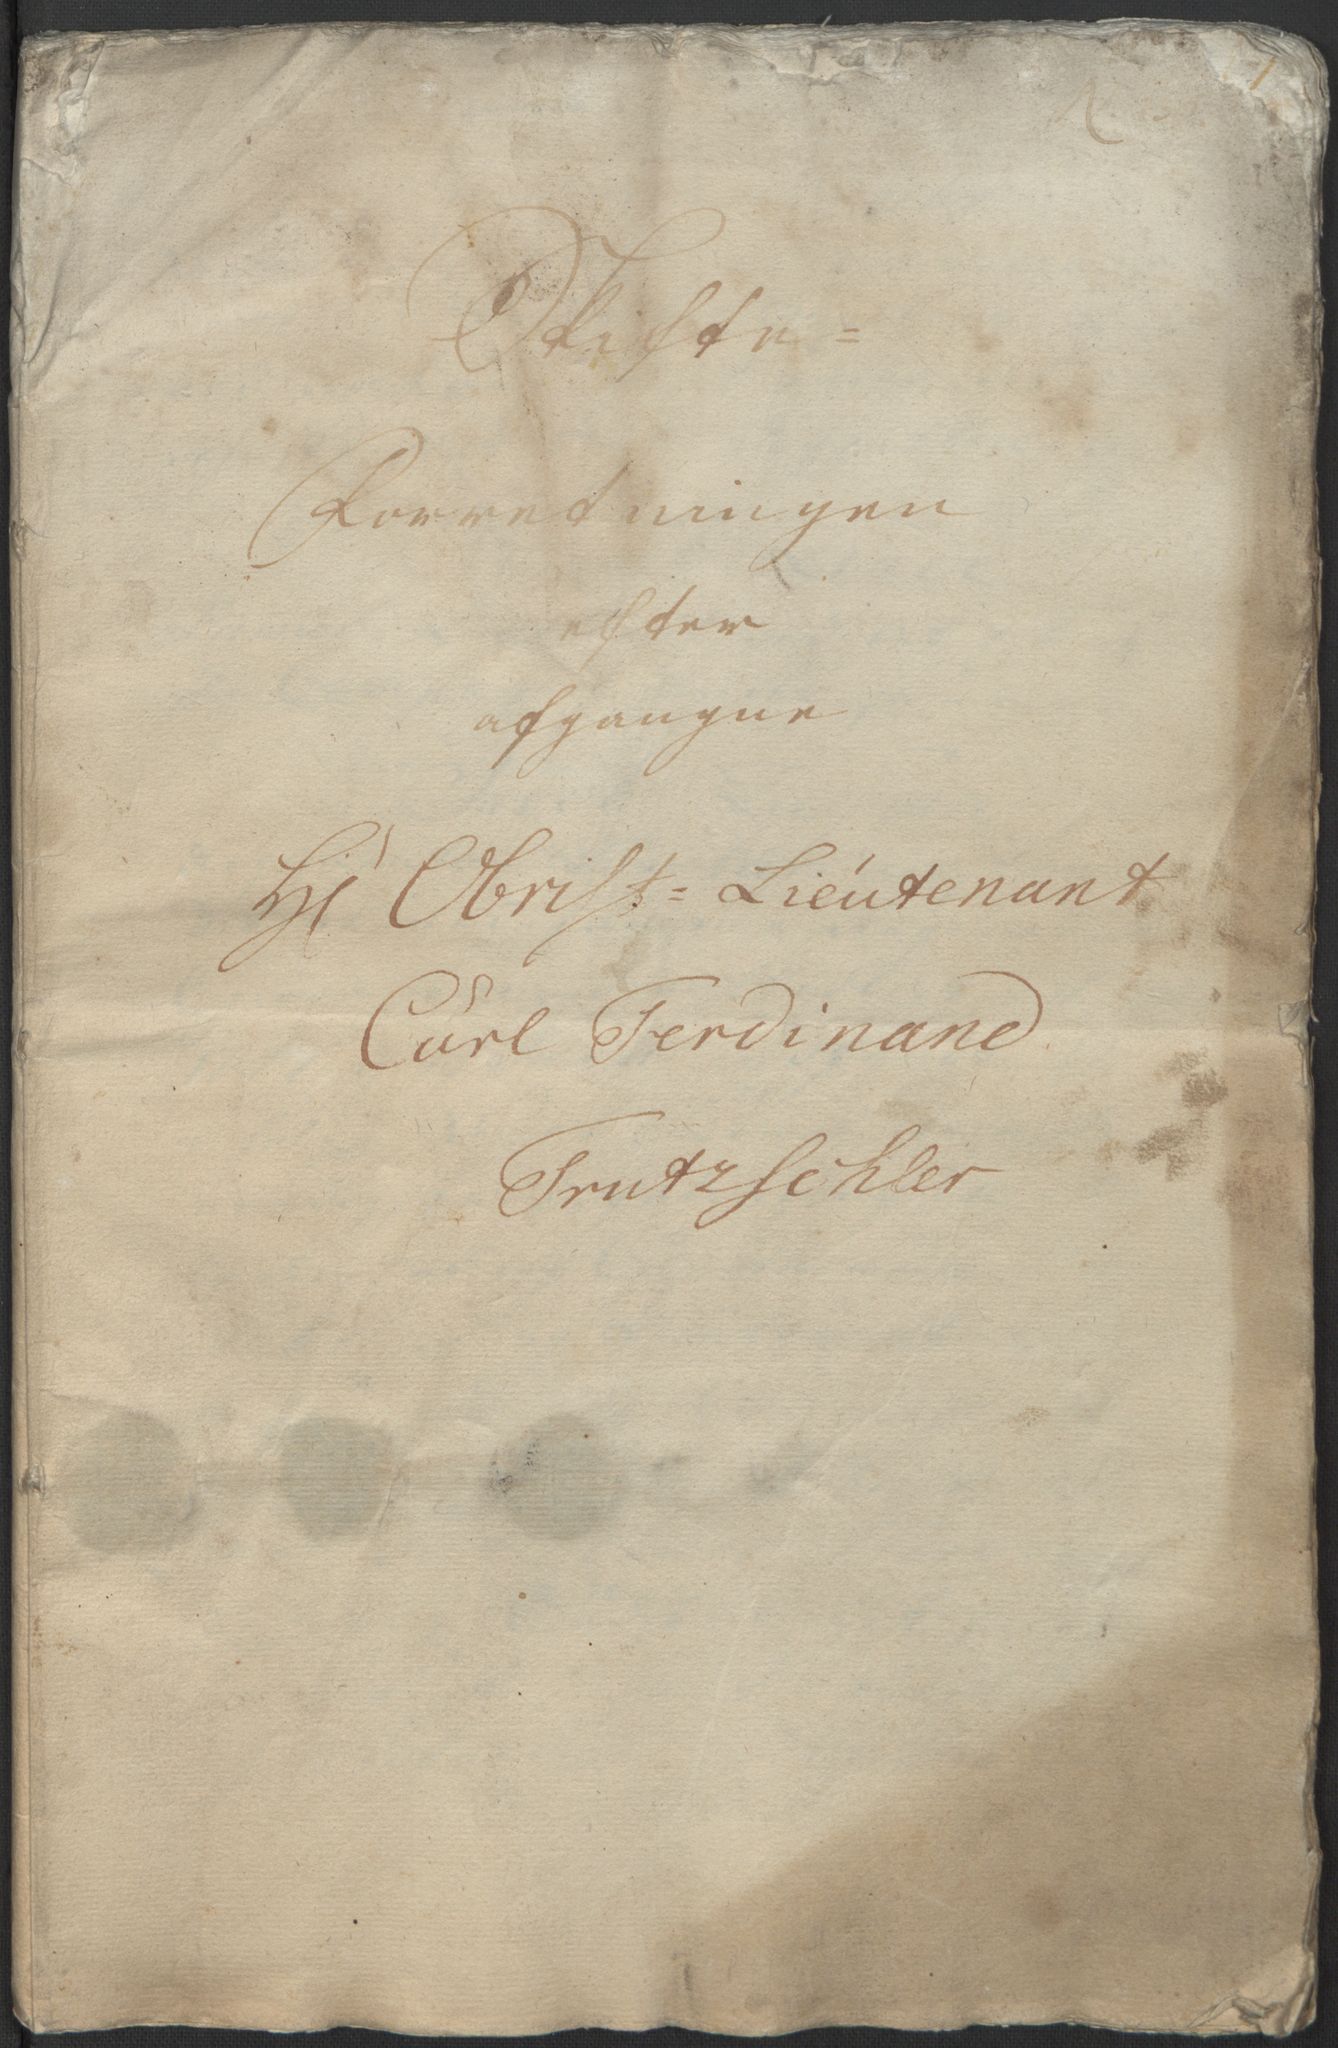 Skifte=
Forretningen
efter
afgangne
Hr Obrist=Lieutenant
Carl Ferdinand
Trutzschler